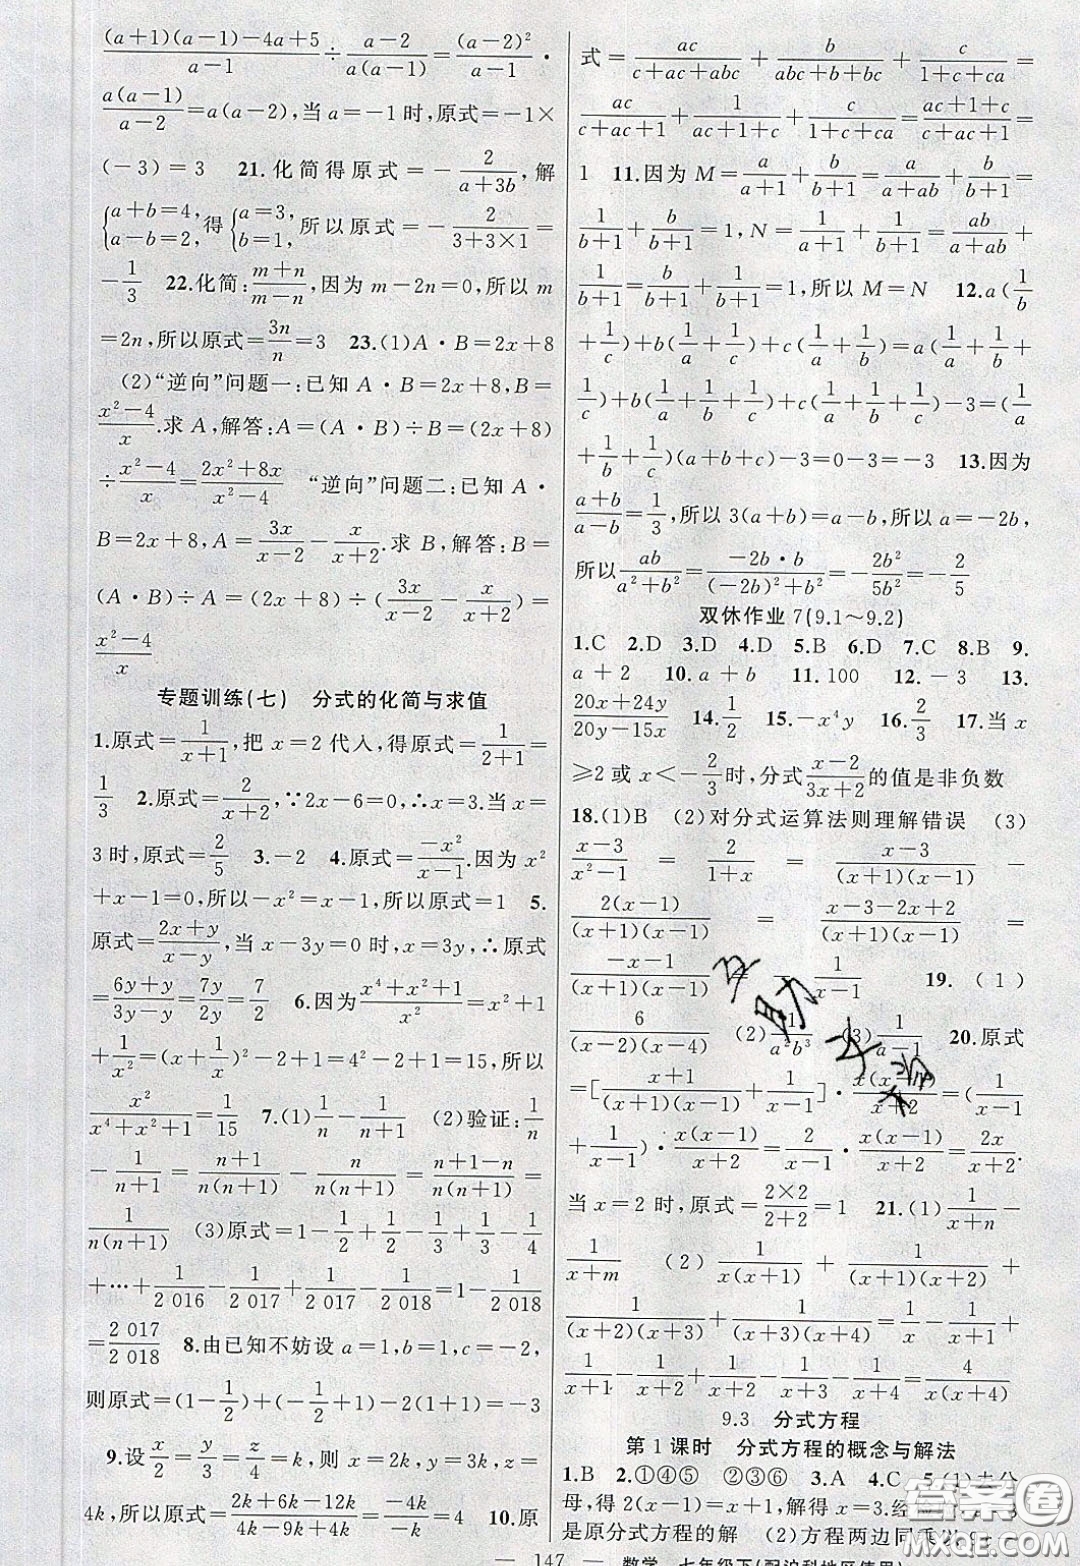 (a+1)(a-1)-4a+5/a-1 ÷ a-2/a(a-1) = (a-2)²/a-1 ·
a(a-1)/a-2 = a(a-2),当 a=-1 时,原式=-1×
(-3)=3 21.化简得原式=-2/a+3b,解
{a+b=4, a-b=2, 得 {a=3, b=1, 所以原式=-2/3+3×1=
-1/3 22.化简:m+n/m-n,因为 m-2n=0,所以 m
=2n,所以原式=3n/n=3 23.(1)A·B=2x+8
(2)“逆向”问题一:已知 A·B=2x+8,B=
x²-4/x.求 A,解答:A=(A·B)÷B=(2x+8)
÷x²-4/x=2x²+8x/x²-4 “逆向”问题二:已知 A·
B=2x+8,A=3x/x-2-x/x+2.求 B,解答:B=
(A·B)÷A=(2x+8)÷(3x/x-2-x/x+2)=
x²-4/x
专题训练(七) 分式的化简与求值
1.原式=1/x+1,把 x=2 代入,得原式=1/2+1=
1/3 2.原式=2/x+2,∵2x-6=0,∴x=3.当 x=
3 时,原式=2/5 3.-2 4.原式=-x²/x-1.因为 x²
+x-1=0,所以-x²=x-1,所以原式=1 5.
原式=2x+y/x-y,当 x-3y=0 时,x=3y,∴原式
=6y+y/3y-y=7y/2y=7/2 6.因为x⁴+x²+1/x²=x²+1
+1/x²=(x+1/x)²-2+1=4²-2+1=15,所以
x²/x⁴+x²+1=1/15 7.(1)1/n-1/n+1 (2)验证:1/n
-1/n+1=n+1/n(n+1)-n/n(n+1)=n+1-n/n(n+1)=
1/n(n+1) (3)原式=1-1/2+1/2-1/3+1/3-1/4
+…+1/2 016-1/2 017+1/2 017-1/2 018=1-1/2 018
=2 017/2 018 8.由已知不妨设 a=1,b=1,c=-2,
则原式=(1-1/2)+(-1/2+1)-2(1+1)=-3
9.设x/2=y/3=z/4=k,则 x=2k,y=3k,z=
4k,所以原式=2k+6k-12k/4k-9k+4k=-4k/-k=4 10.原
式=ac/c+ac+abc+b/abc+b+bc+c/1+c+ca=
ac/c+ac+1+1/ac+1+c+c/1+c+ca=ac+1+c/c+ac+1=
1 11.因为 M=a/a+1+b/b+1=a/a+ab+b/b+1=
1/b+1+b/b+1=1,N=1/a+1+1/b+1=ab/a+ab+
1/b+1=b/b+1+1/b+1=1,所以 M=N 12.a(1/b
+1/c)+b(1/a+1/c)+c(1/a+1/b)=a(1/a+1/b+
1/c)+b(1/a+1/b+1/c)+c(1/a+1/b+1/c)-3=(1/a
+1/b+1/c)(a+b+c)-3=0-3=-3 13.因为
a+b/a-b=1/3,所以 3(a+b)=a-b,所以 a=-2b,
所以ab/a²+b²=-2b·b/(-2b)²+b²=-2b²/5b²=-2/5
双休作业 7(9.1~9.2)
1.C 2.D 3.D 4.D 5.B 6.D 7.C 8.B 9.
a+2 10.a+b 11.100 12.-3 13.
20x+24y/20y-15x 14.1/2 15.-x⁴y 16.2/3 17.当 x
≥2 或 x<-2/3时,分式x-2/3x+2的值是非负数
18.(1)B (2)对分式运算法则理解错误 (3)
x-3/x²-1 - 2/1+x = x-3/(x+1)(x-1) -
2(x-1)/(x+1)(x-1) = x-3-2x+2/(x+1)(x-1) =
-x-1/(x+1)(x-1) = -1/x-1 19.(1)
6/(x-2)(x-4) (2)1/a²b³ (3)1/a-1 20.原式
=[x+1/(x+1)(x-1)+1/x-1]·x(x-1)/x+2=(1/x-1
+1/x-1)·x(x-1)/x+2=2/x-1·x(x-1)/x+2=2x/x+2.
当 x=2 时,原式=2×2/2+2=1 21.(1)1/x+n-
1/x+m (2)1/x(x+1)+1/(x+1)(x+2)+
1/(x+2)(x+3)+1/(x+3)(x+4)=1/x-1/x+1+
1/x+1-1/x+2+…+1/x+3-1/x+4=1/x-1/x+4=4/x(x+4)
9.3 分式方程
第 1 课时 分式方程的概念与解法
1.B 2.①④⑤ ②③⑥ 3.A 4.C 5.(1)去分
母,得 2(x-1)=x+1,解得 x=3.经
是原分式方程的解 (2)方程两边同乘以
答案圈
— 147 — 数学 七年级下(配沪科地区使用)